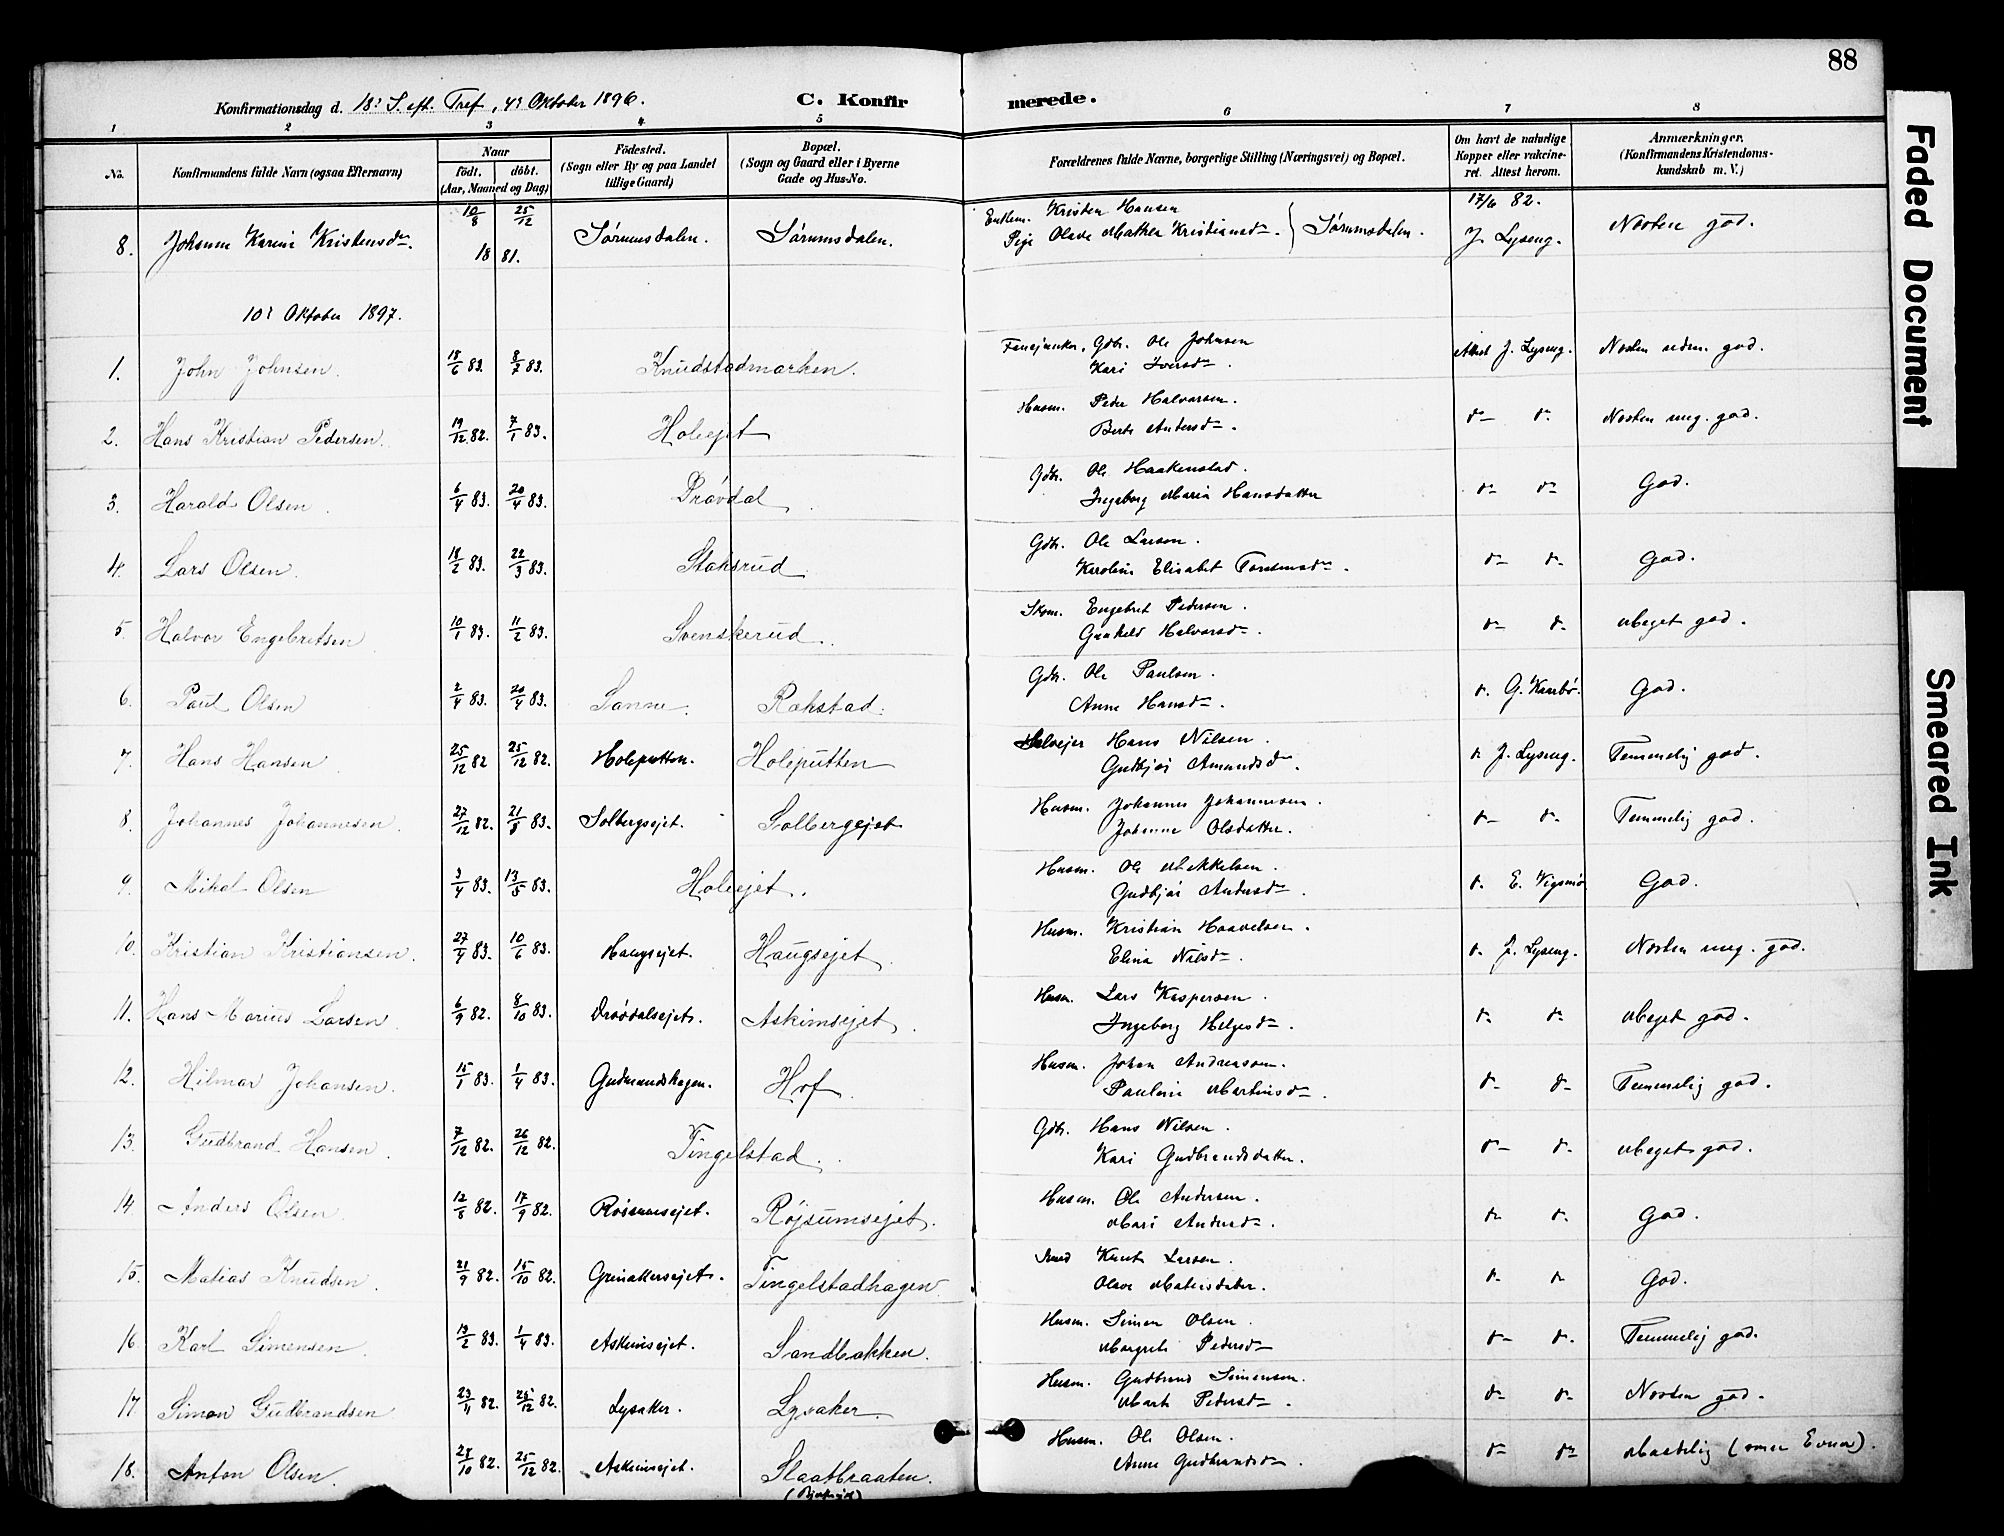 88
Konfirmationsdag d. 18: S. eft. Tref, 4: Oktober 1896.
C. Konfirmerede.
1 2 3 4 5 6 7 8
No.
Konfirmandens fulde Navn (ogsaa Efternavn)
Naar
födt. döbt.
(Aar, Maaned og Dag)
Födested.
(Sogn eller By og paa Landet
tillige Gaard)
Bopæl.
(Sogn og Gaard eller i Byerne
Gade og Hus-No.
Forældrenes fulde Navne, borgerlige Stilling (Næringsvei) og Bopæl.
Om havt de naturlige
Kopper eller vakcine-
ret. Attest herom.
Anmærkninger.
(Konfirmandens Kristendoms-
kundskab m. V.)
8. Johanne Karine Kristensdr. 10/8 25/12 1881. Sørumsdalen. Sørumsdalen. Kristen Hansen 17/6 82. Næsten god.
Pige Olave Mathea Kristiansdr. Sørumsdalen. J. Lyseng.
10: Oktober 1897.
1. John Johnsen. 18/6 83. 8/7 83. Knudstadmarken. Gdbr. Ole Johnsen Attest J. Lyseng. Næsten udm. god.
Kari Iversdr.
2. Hans Kristian Pedersen. 19/12 82. 7/1 83. Holeejet Husm. Peder Halvorsen. do do Næsten meg. god.
Berte Andersdr.
3. Harald Olsen. 6/4 83. 20/4 83. Drövdal Gdbr. Ole Haakenstad. do do God.
Ingeborg Maria Hansdatter
4. Lars Olsen. 18/2 83. 22/3 83. Staksrud. Gdbr. Ole Larsen. do do God.
Karoline Elisabet
5. Halvor Engebretsen 10/1 83. 11/2 83. Svenskerud. Skom. Engebret Pedersen. do do Meget god.
Gunhild Halvorsdr.
6. Paul Olsen 2/4 83. 20/4 83. Sanne. Rakstad. Gdbr. Ole Paulsen. do G. Kaarbø. God.
Anne Hansdr.
7. Hans Hansen 25/12 82 25/12 82. Holeputten. Holeputten Selvejer Hans Nilsen. do J. Lyseng. Temmelig god.
Gudbjør Amundsdr.
8. Johannes Johannesen. 27/12 82. 21/8 83. Solbergsejet. Solbergejet Husm. Johannes Johannesen. do do Temmelig god.
Johanne Olsdatter.
9. Mikal Olsen 3/4 83. 13/5 83. Holeejet. Husm. Ole Mikkelsen. do E. Vigsmo God.
Gudbjør Andersdr.
10. Kristian Kristiansen. 27/4 83. 10/6 83. Haugsejet. Haugsejet. Husm. Kristian Haavelsen. do J. Lyseng. Næsten meg. god.
Elina Nilsdr.
11. Hans Marius Larsen 6/9 82. 8/10 83. Drövdalsejet. Askimsejet. Husm. Lars Kaspersen. do do Meget god.
Ingeborg Helgesdr.
12. Hilmar Johansen. 15/1 83. 1/4 83. Gudmundshagen. Hof. Husm. Johan Andreassen. do do Temmelig god.
Pauline Martinsdr.
13. Gudbrand Hansen. 7/12 82. 26/12 82. Tingelstad. Gdbr. Hans Nilsen. do do Meget god.
Kari Gudbrandsdatter.
14 Anders Olsen 12/8 82. 17/9 82. Røisumsejet. Røjsumsejet. Husm. Ole Andersen. do do God.
Mari Andersdr.
15. Matias Knudsen. 21/9 82. 15/10 82. Grinakersejet. Tingelstadhagen. Smed Knut Larsen. do do God.
Olave Matiasdatter.
16. Karl Simensen. 13/2 83. 1/4 83. Askimsejet. Sandbakken. Husm. Simen Olsen. do do Temmelig god.
Margrete Pedersdr
17. Simon Gudbrandsen 23/11 82. 26/12 82. Lysaker. Lysaker. Husm. Gudbrand Simensen. do do Næsten god.
Marte Pedersdr.
18. Anton Olsen 28/10 82. 25/12 82. Askimsejet. Slaatbraaten. Husm. Ole Olsen. do do Maadelig (smaa Evner).
Anne Gudbrandsdr.
Faded Document
Smeared Ink